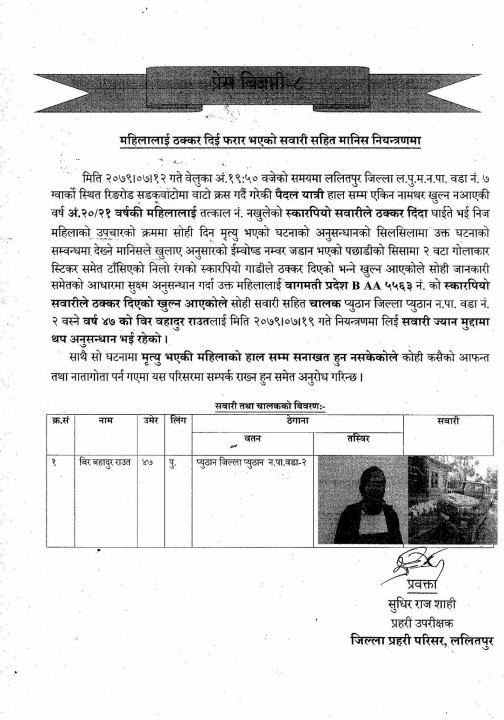 प्रेस विज्ञप्ती-८
महिलालाई ठक्कर दिई फरार भएको सवारी सहित मानिस नियन्त्रणमा
मिति २०७९।०७।१२ गते वेलुका अं.१९:५० वजेको समयमा ललितपुर जिल्ला ल.पु.म.न.पा. वडा नं. ७
ग्वार्को स्थित रिङरोड सडकुवाटोमा वाटो क्रस गर्दै गरेकी पैदल यात्री हाल सम्म एकिन नामथर खुल्न नआएकी
वर्ष अं.२०/२१ वर्षकी महिलालाई तत्काल नं. नखुलेको स्कारपियो सवारीले ठक्कर दिंदा घाईते भई निज
महिलाको उपचारको क्रममा सोही दिन मृत्यु भएको घटनाको अनुसन्धानको सिलसिलामा उक्त घटनाको
सम्वन्धमा देख्ने मानिसले खुलाए अनुसारको ईम्वोष्ड नम्वर जडान भएको पछाडीको सिसामा २ वटा गोलाकार
स्टिकर समेत टाँसिएको निलो रंगको स्कारपियो गाडीले ठक्कर दिएको भन्ने खुल्न आएकोले सोही जानकारी
समेतको आधारमा सुक्ष्म अनुसन्धान गर्दा उक्त महिलालाई वागमती प्रदेश B AA ५५६३ नं. को स्कारपियो
सवारीले ठक्कर दिएको खुल्न आएकोले सोही सवारी सहित चालक प्युठान जिल्ला प्युठान न.पा. वडा नं.
२ वस्ने वर्ष ४७ को विर वहादुर राउतलाई मिति २०७९।०७।१९ गते नियन्त्रणमा लिई सवारी ज्यान मुद्दामा
थप अनुसन्धान भई रहेको।
साथै सो घटनामा मृत्यु भएकी महिलाको हाल सम्म सनाखत हुन नसकेकोले कोही कसैको आफन्त
तथा नातागोता पर्न गएमा यस परिसरमा सम्पर्क राख्न हुन समेत अनुरोध गरिन्छ।
सवारी तथा चालकको बिवरणः-
क्र.सं नाम उमेर लिंग ठेगाना सवारी
वतन तस्विर
१ बिर बहादुर राउत ४७ पु. प्युठान जिल्ला प्युठान न.पा.वडा-२
प्रवक्ता
सुधिर राज शाही
प्रहरी उपरीक्षक
जिल्ला प्रहरी परिसर, ललितपुर